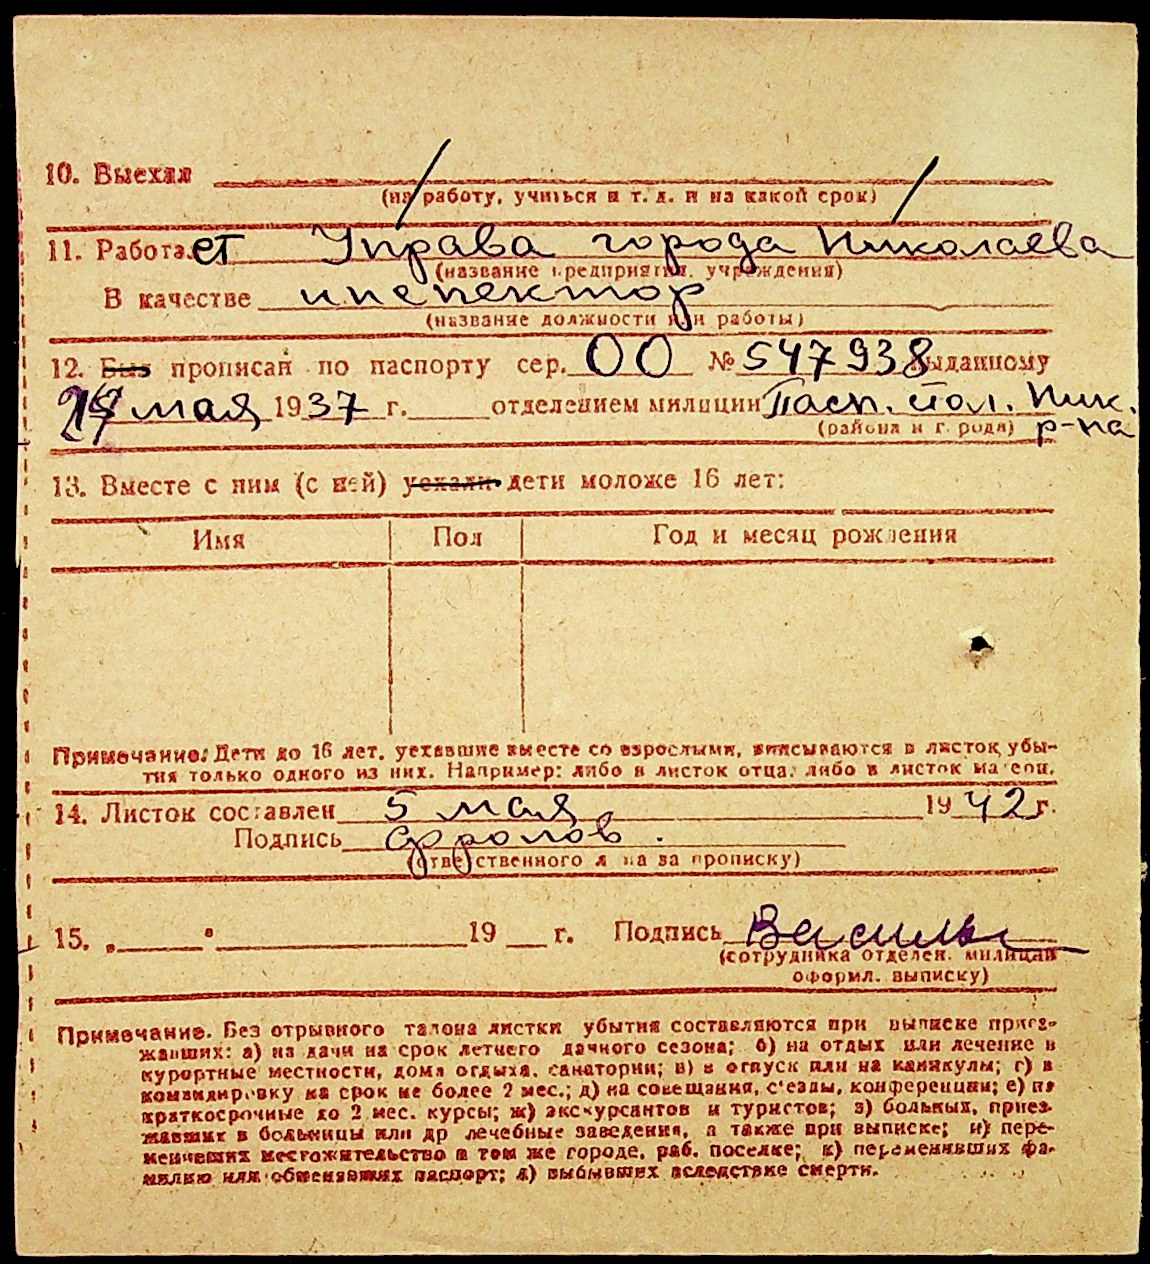 10. Выехал
(на работу, учиться и т. д. и на какой срок)
11. Работает Управа города Николаева
(название предприятия, учреждения)
В качестве инспектор
(название должности или работы)
12. Был прописан по паспорту сер. ОО № 547938 выданному
мая 1937 г. отделением милиции Пасп. стол. Ник.
(района и города) р-на
13. Вместе с ним (с ней) уехали дети моложе 16 лет:
Имя Пол Год и месяц рождения
Примечание: Дети до 16 лет, уехавшие вместе со взрослыми, вписываются в листок убы-
тия только одного из них. Например: либо в листок отца, либо в листок матери.
14. Листок составлен 5 мая 1942 г.
Подпись Фролов.
(ответственного л на за прописку)
15. „ “ 19 г. Подпись
(сотрудника отделен. милиции
оформл. выписку)
Примечание. Без отрывного талона листки убытия составляются при выписке приез-
жавших: а) на дачи на срок летнего дачного сезона; б) на отдых или лечение в
курортные местности, дома отдыха, санатории; в) в отпуск или на каникулы; г) в
командировку на срок не более 2 мес.; д) на совещания, с'езды, конференции; е) на
краткосрочные до 2 мес. курсы; ж) экскурсантов и туристов; з) больных, приез-
жавших в больницы или др лечебные заведения, а также при выписке; и) пере-
менивших местожительство в том же городе, раб. поселке; к) переменивших фа-
милию или обменявших паспорт; л) выбывших вследствие смерти.